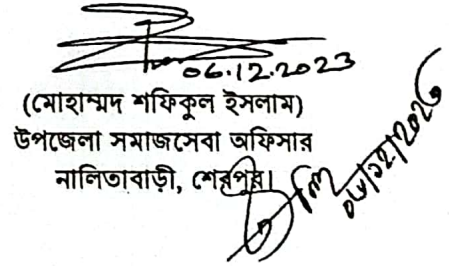 06.12.2023
(মোহাম্মদ শফিকুল ইসলাম)
উপজেলা সমাজসেবা অফিসার
নালিতাবাড়ী, শেরপুর।